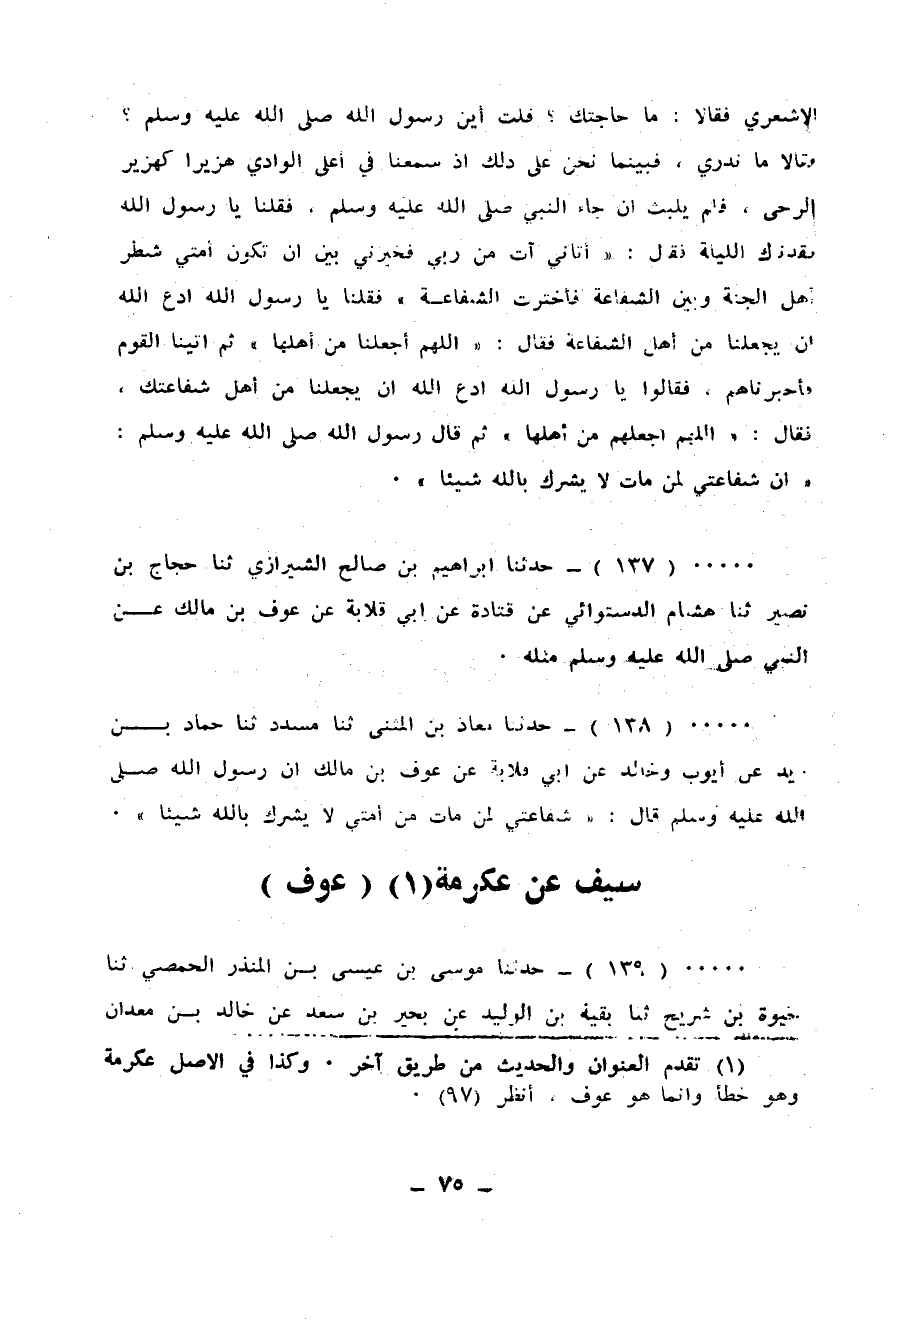 الاشعري فقالا : ما حاجتك ؟ قلت أين رسول الله صلى الله عليه وسلم ؟
وقالا ما ندري ، فبينما نحن على ذلك اذ سمعنا في أعلى الوادي هزيرا كهزير
الرحى ، فلم يلبث ان جاء النبي صلى الله عليه وسلم ، فقلنا يا رسول الله
فقدناك الليلة فقال : « أتاني آت من ربي فخيرني بين ان تكون أمتي شطر
أهل الجنة وبين الشفاعة فأخترت الشفاعــة » فقلنا يا رسول الله ادع الله
ان يجعلنا من أهل الشفاعة فقال : « اللهم أجعلنا من أهلها » ثم اتينا القوم
فأخبرناهم ، فقالوا يا رسول الله ادع الله ان يجعلنا من أهل شفاعتك ،
فقال : « اللهم اجعلهم من أهلها » ثم قال رسول الله صلى الله عليه وسلم :
« ان شفاعتي لمن مات لا يشرك بالله شيئا » ٠
٠٠٠٠٠ ( ١٣٧ ) ــ حدثنا ابراهيم بن صالح الشيرازي ثنا حجاج بن
نصير ثنا هشام الدستوائي عن قتادة عن ابي قلابة عن عوف بن مالك عــن
النبي صلى الله عليه وسلم مثله ٠
٠٠٠٠٠ ( ١٣٨ ) ــ حدثنا معاذ بن المثنى ثنا مسدد ثنا حماد بــــن
زيد عن أيوب وخالد عن ابي قلابة عن عوف بن مالك ان رسول الله صــلى
الله عليه وسلم قال : « شفاعتي لمن مات من أمتي لا يشرك بالله شيئا » ٠
سيف عن عكرمة(١) ( عوف )
٠٠٠٠٠ ( ١٣٩ ) ــ حدثنا موسى بن عيسى بــن المنذر الحمصي ثنا
حيوة بن شريح ثنا بقية بن الوليد عن بحير بن سعد عن خالد بــن معدان
(١) تقدم العنوان والحديث من طريق آخر ٠ وكذا في الاصل عكرمة
وهو خطأ وانما هو عوف ، أنظر (٩٧) ٠
ــ ٧٥ ــ